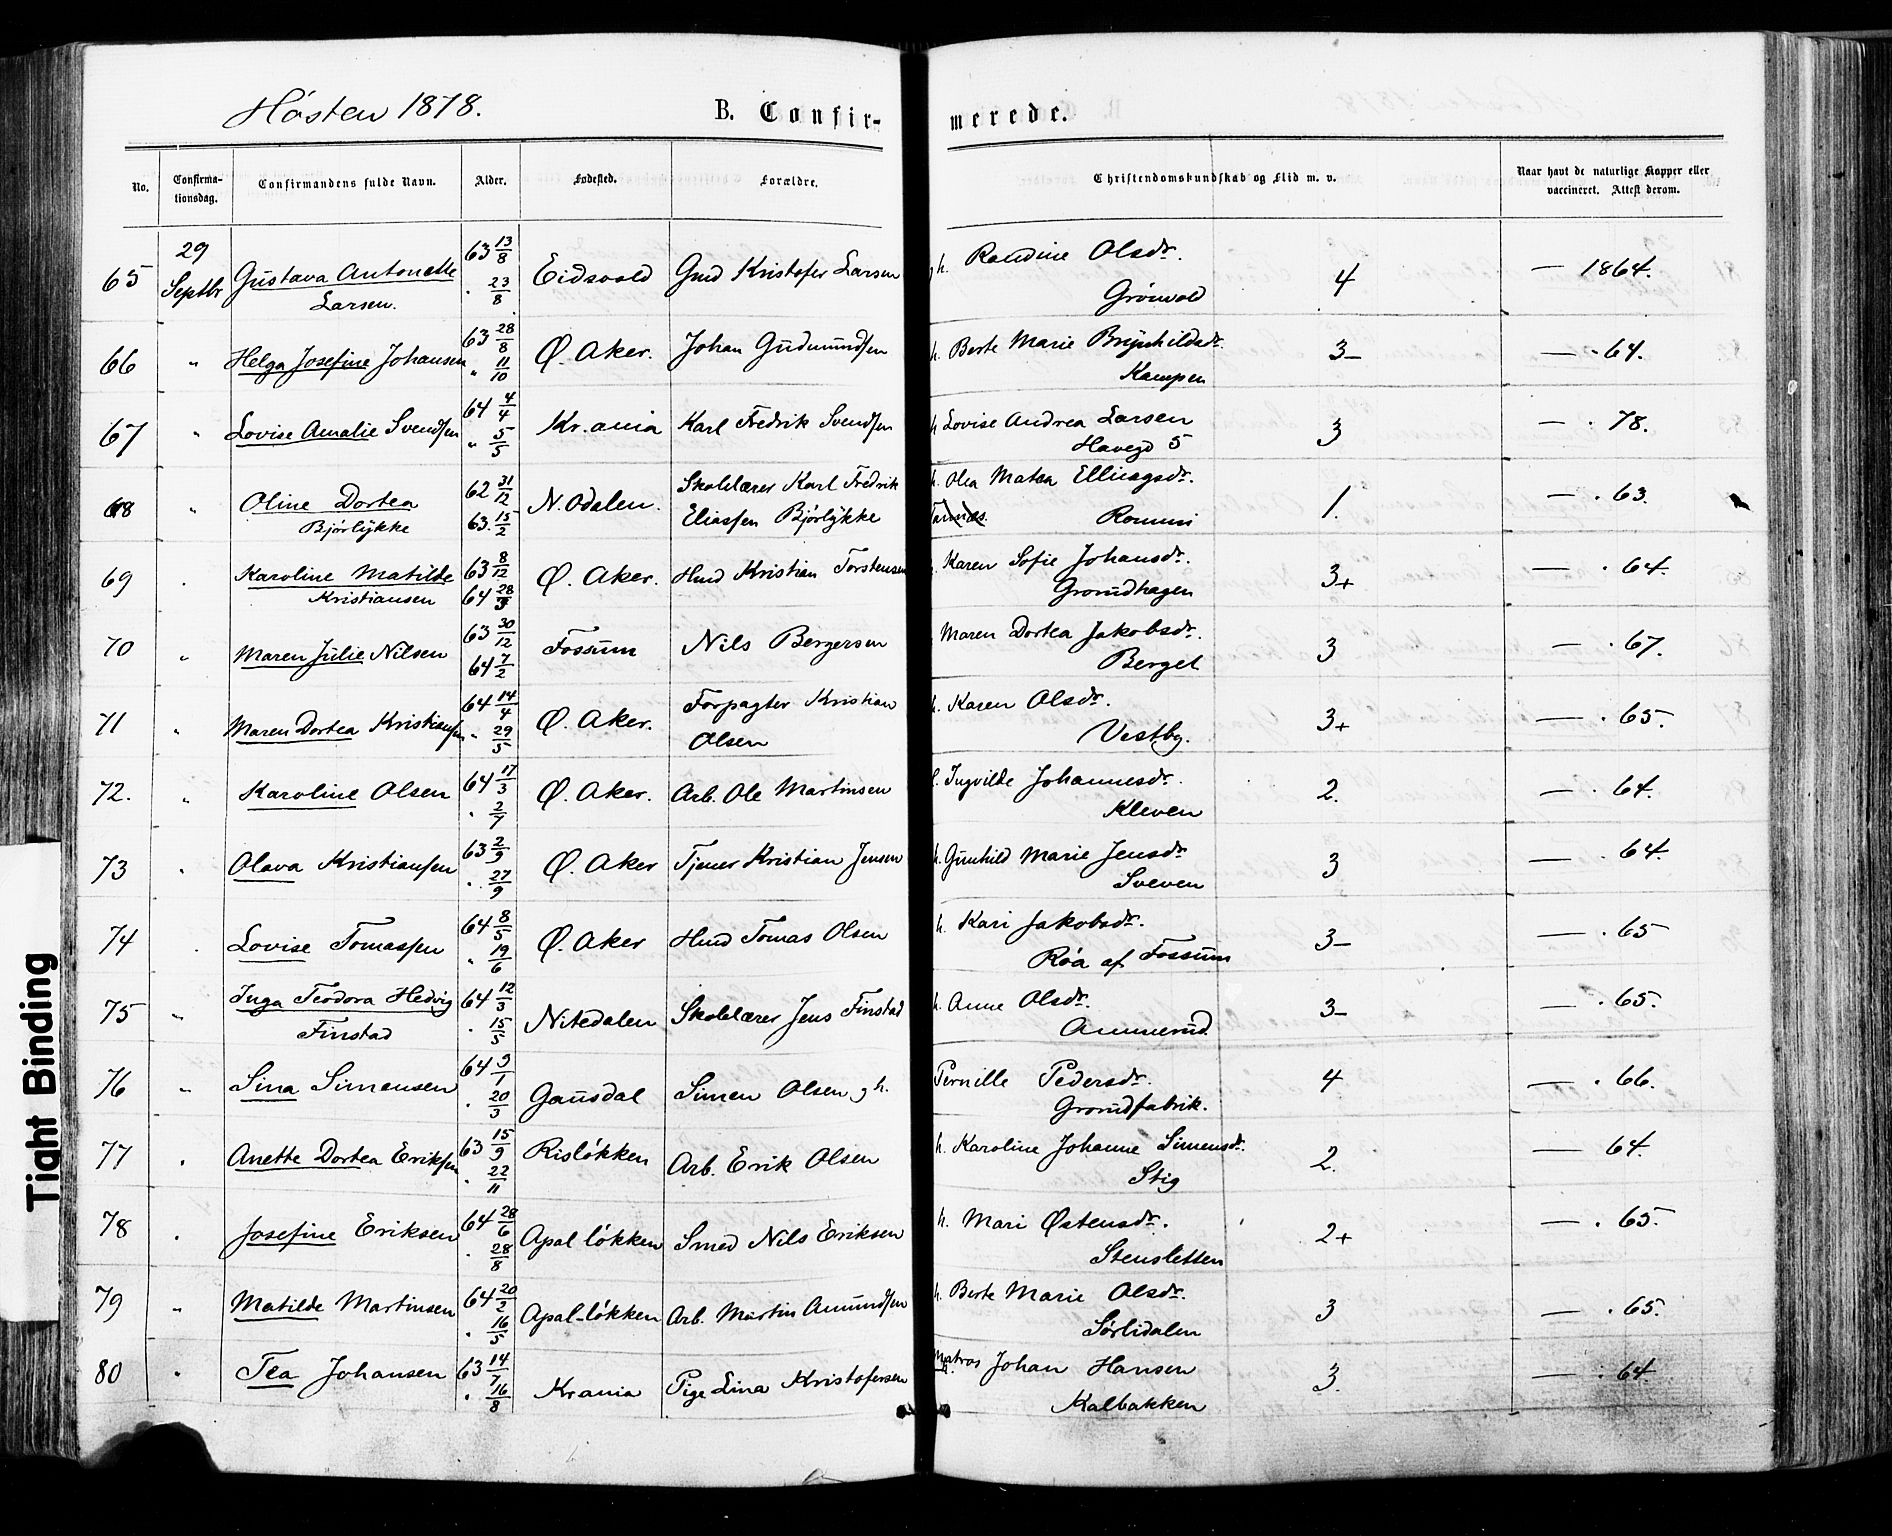 Høsten 1878.
B. Confir-
merede.
No.
Confirma-
tionsdag.
Confirmandens fulde Navn.
Alder.
Fødested.
Forældre.
Christendomskundskab og Flid m. v.
Naar havt de naturlige Kopper eller
vaccineret. Attest derom.
65 29 Septbr Gustava Antonette Larsen. 63 13/8 23/8 Eidsvold Gmd Kristofer Larsen h. Randine Olsdr. Grönvold 4 — 1864.
66 " Helga Josefine Johansen 63 28/8 " 11/10 Ø. Aker. Johan Gudmundsen h. Berte Marie Brynhildsdr. Kampen 3- — 64.
67 " Lovise Amalie Svendsen 64 4/4 " 5/5 Kr.ania Karl Fredrik Svendsen h Lovise Andrea Larsen Havegd 5 3 — . 78.
68 " Oline Dortea Bjørlykke 62 31/12 63. 15/2 N. Odalen. Skolelærer Karl Fredrik Eliassen Bjørlykke h. Olea Matea Ellingsdr. Rommi 1. — . 63.
69 . Karoline Matilde Kristiansen 63 8/12 64 28/3 Ø. Aker. Hmd Kristian Torstensen Karen Sofie Johansdr. Grorudhagen 3+ — . 64.
70 " Maren Julie Nilsen 63 30/12 64 7/2 Fossum Nils Bergersen Maren Dortea Jakobsdr. Berget 3 — . 67.
71 " Maren Dortea Kristiansen 64 14/4 " 29/5 Ø. Aker. Forpagter Kristian Olsen h. Karen Olsdr. Vestby. 3+ — . 65.
72. " Karoline Olsen 64 17/3 . 2/7 Ø. Aker. Arb. Ole Martinsen Ingvilde Johannesdr. Kleven 2. — . 64.
73 . Olava Kristiansen 63 2/9 . 27/9 Ø. Aker Tjener Kristian Jensen h. Gunhild Marie Jensdr. Sveven 3 — . 64.
74 . Lovise Tomassen 64 8/5 " 19/6 Ø. Aker Hmd Tomas Olsen h. Kari Jakobsdr. Røa af Fossum 3- — . 65
75 " Inga Teodora Hedvig Finstad 64 12/3 . 15/5 Nitedalen Skolelærer Jens Finstad h. Anne Olsdr. Ammerud. 3- — . 65.
76 " Lina Simensen 64 9/1 . 20/3 Gausdal Simen Olsen g h. Pernille Pedersdr. Grorudfabrik. 4 — . 66.
77 . Anette Dortea Eriksen 63 15/9 . 22/11 Risløkken Arb. Erik Olsen h. Karoline Johanne Simensdr. Stig 2. — 64.
78 . Josefine Eriksen 64 28/6 . 28/8 Apalløkken Smed Nils Eriksen h. Mari Østensdr. Stensletten 2+ — . 65.
79 " Matilde Martinsen 64 20/2 . 16/5 Apal-løkken Arb. Martin Amundsen h. Berte Marie Olsdr. Sørlidalen 3 — . 65.
80 " Tea Johansen 63 14/7 . 16/8 Krania Pige Lina Kristofersen Matros Johan Hansen Kalbakken 3. — . 64
Tight Binding